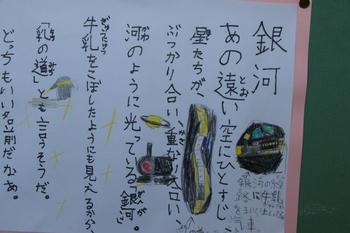 銀河
あの遠い空にひとすじ、
星たちが、
ぶつかり合い、重なり合い、
河のように光っている「銀河」。
牛乳をこぼしたようにも見えるから、
「乳の道」と言うそうだ。
どっちもいい名前だなあ。